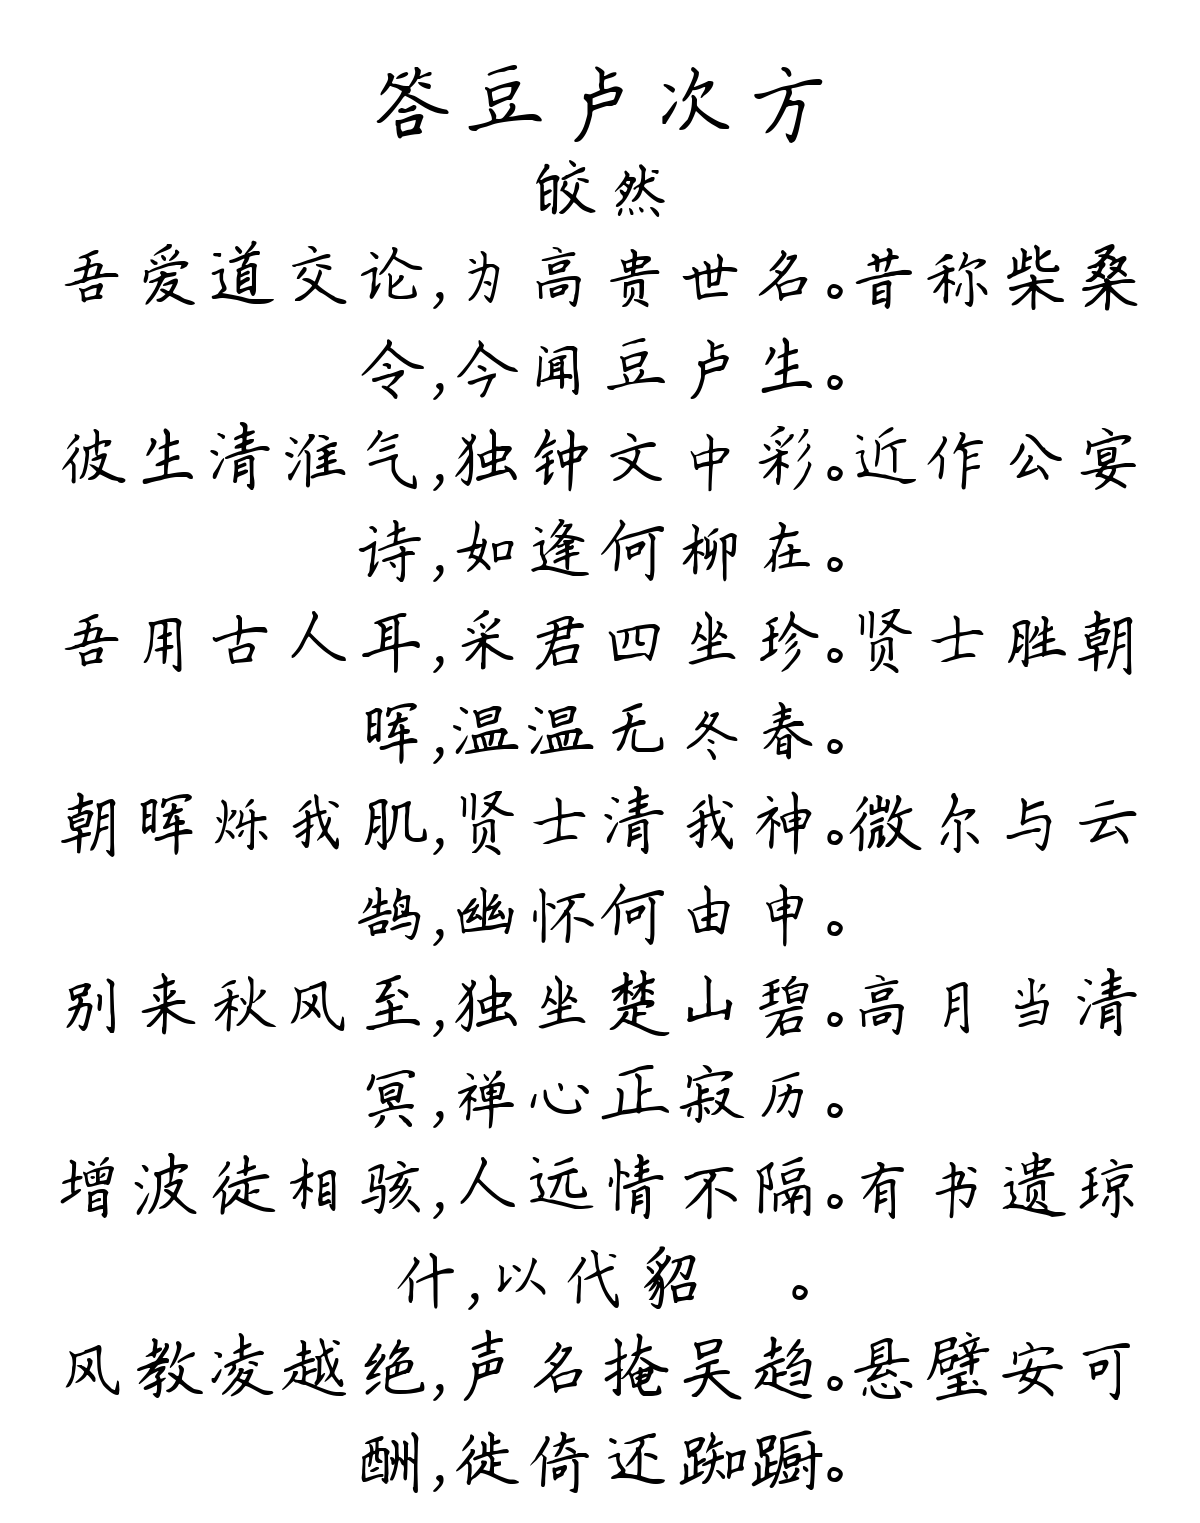 答豆卢次方
皎然
吾爱道交论,为高贵世名。昔称柴桑
令,今闻豆卢生。
彼生清淮气,独钟文中彩。近作公宴
诗,如逢何柳在。
吾用古人耳,采君四坐珍。贤士胜朝
晖,温温无冬春。
朝晖烁我肌,贤士清我神。微尔与云
鹄,幽怀何由申。
别来秋风至,独坐楚山碧。高月当清
冥,禅心正寂历。
增波徒相骇,人远情不隔。有书遗琼
什,以代貂 。
风教凌越绝,声名掩吴趋。悬璧安可
酬,徙倚还踟蹰。